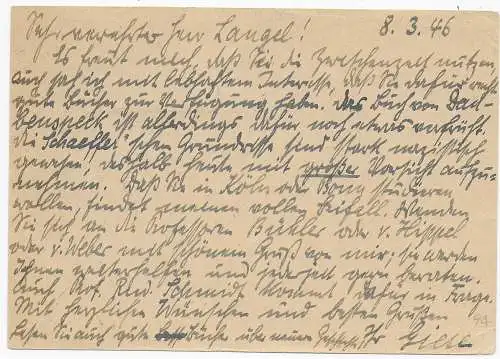 Sehr verehrter Herr Langel! 8. 3. 46
Es freut mich, daß Sie die Zwischenzeit nutzen,
auch sah ich mit lebhaftem Interesse, daß Sie dafür recht
gute Bücher zur Verfügung haben. Das Buch von
ist allerdings dafür noch etwas verfrüht.
Die Schaeffer'schen Grundrisse sind stark nazistisch
gewesen, deshalb heute mit großer Vorsicht aufzu-
nehmen. Daß Sie in Köln oder Bonn studieren
wollen findet meinen vollen Beifall. Wenden
Sie sich an die Professoren oder v. Hippel
oder v. Weber mit schönem Gruß von mir, sie werden
Ihnen weiterhelfen und jederzeit gern beraten.
Auch Prof. Rud. Schmidt kommt dafür in Frage.
Mit herzlichen Wünschen und besten Grüßen
Lesen Sie auch gute Bücher über neuere Geschichte. Ihr